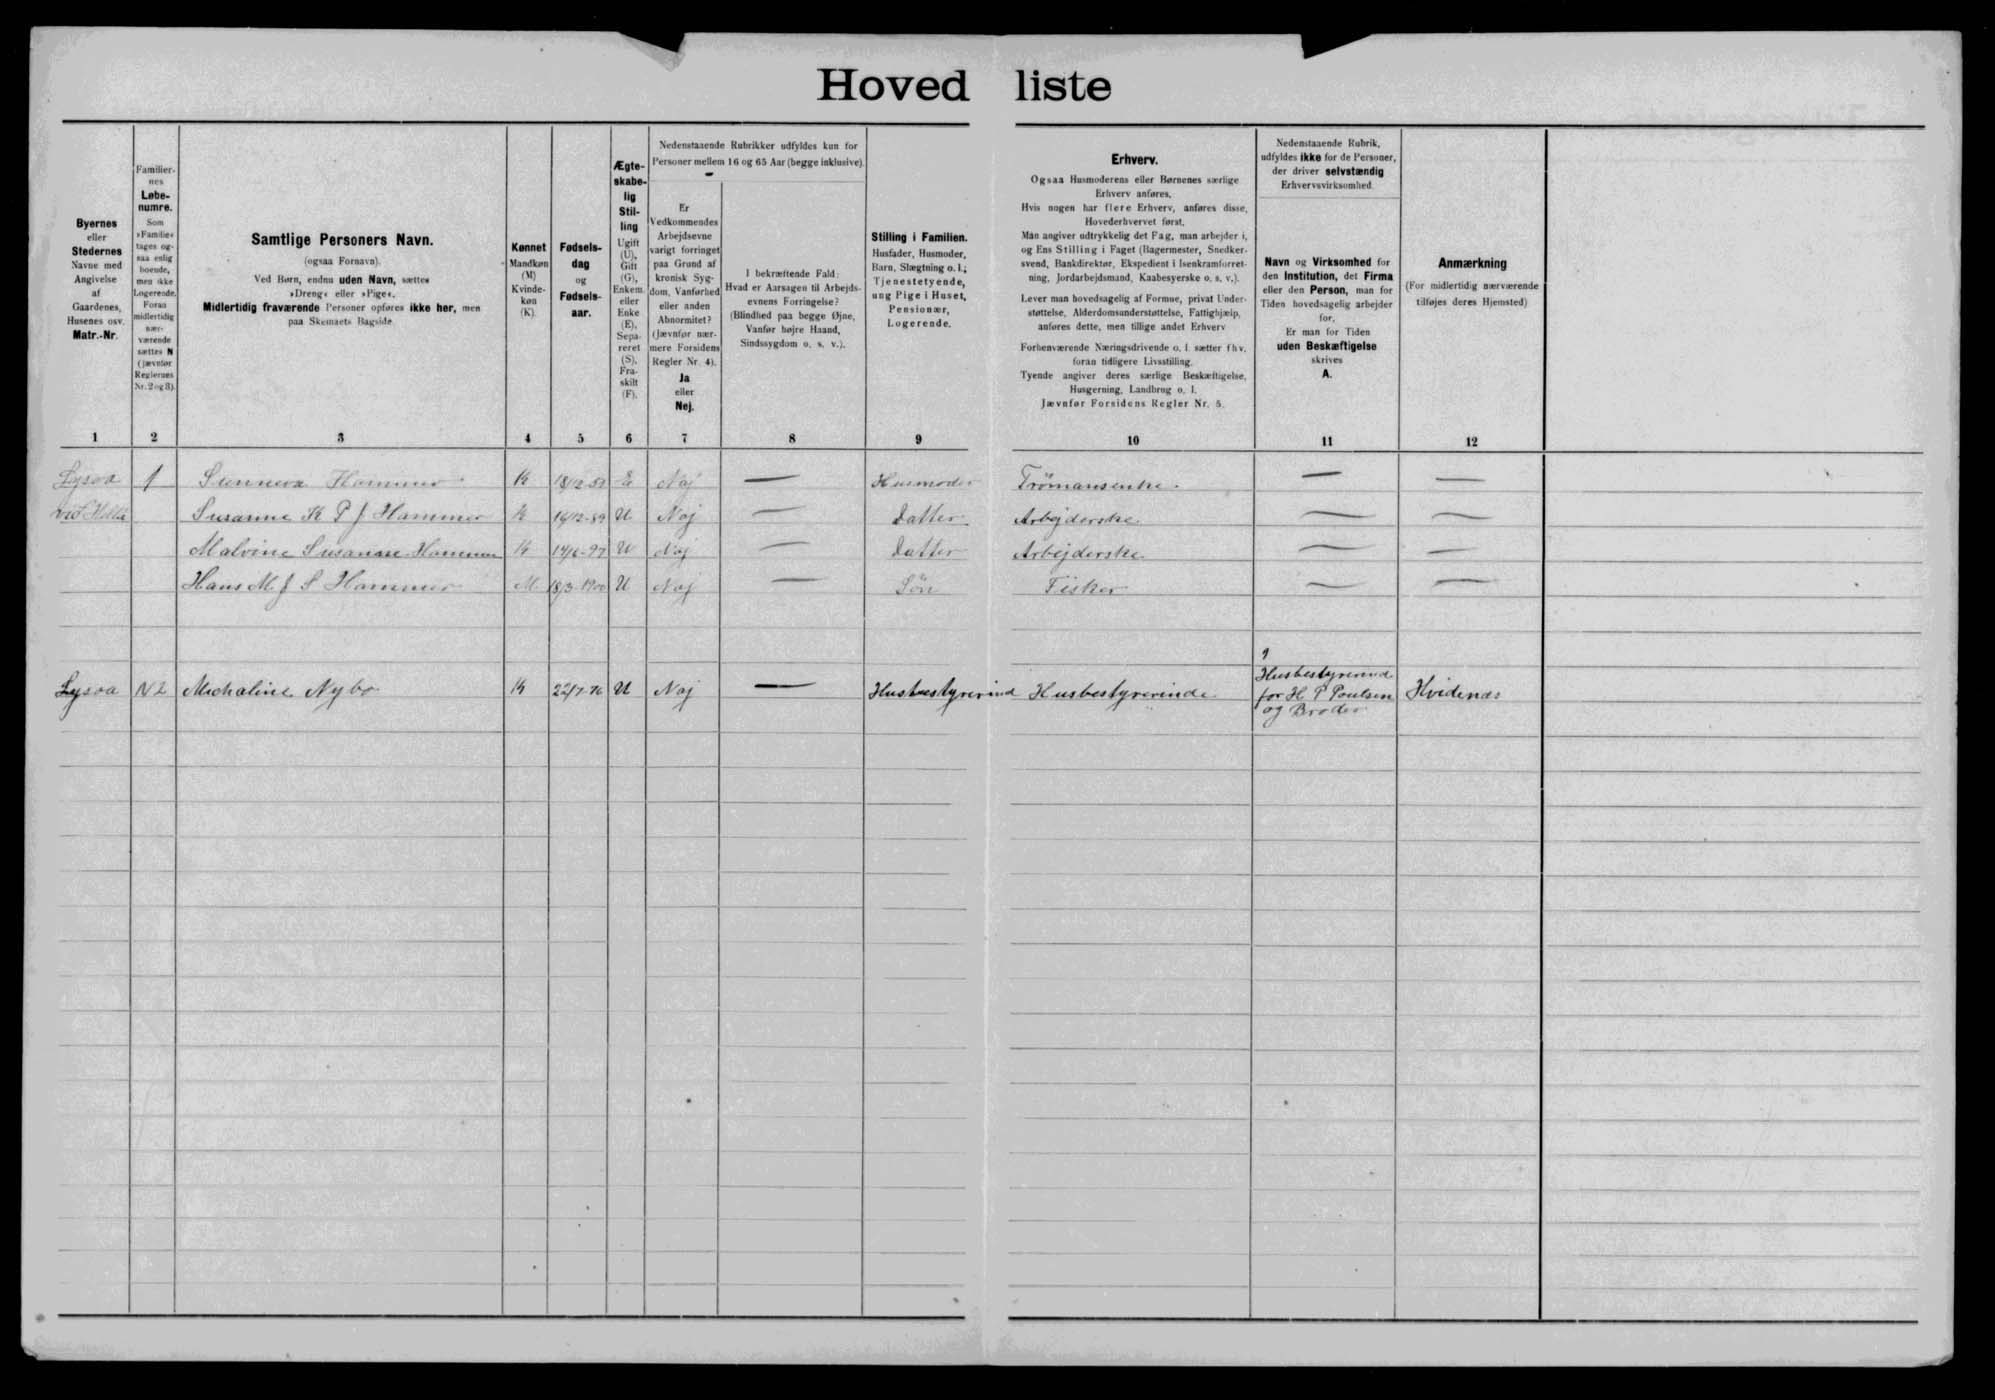 Hovedliste
Byernes
eller
Stedernes
Navne med
Angivelse
af
Gaardenes,
Husenes osv.
Matr.-Nr.
1
Familier-
nes
Løbe-
numre.
Som
»Familie«
tages og-
saa enlig
boende,
men ikke
Logerende.
Foran
midlertidig
nær-
værende
sættes N
(jævnfør
Reglernes
Nr. 2 og 3).
2
Samtlige Personers Navn.
(ogsaa Fornavn).
Ved Børn, endnu uden Navn, sættes
»Dreng« eller »Pige«.
Midlertidig fraværende Personer opføres ikke her, men
paa Skemaets Bagside.
3
Kønnet
Mandkøn
(M)
Kvinde-
køn
(K).
4
Fødsels-
dag
og
Fødsels-
aar.
5
Ægte-
skabe-
lig
Stil-
ling
Ugift
(U),
Gift
(G),
Enkem.
eller
Enke
(E),
Sepa-
reret
(S),
Fra-
skilt
(F).
6
Nedenstaaende Rubrikker udfyldes kun for
Personer mellem 16 og 65 Aar (begge inklusive).
Er
Vedkommendes
Arbejdsevne
varigt forringet
paa Grund af
kronisk Syg-
dom, Vanførhed
eller anden
Abnormitet?
(Jævnfør nær-
mere Forsidens
Regler Nr. 4).
Ja
eller
Nej.
7
I bekræftende Fald:
Hvad er Aarsagen til Arbejds-
evnens Forringelse?
(Blindhed paa begge Øjne,
Vanfør højre Haand,
Sindssygdom o. s. v.).
8
Stilling i Familien.
Husfader, Husmoder,
Barn, Slægtning o. l.;
Tjenestetyende,
ung Pige i Huset,
Pensionær,
Logerende.
9
Erhverv.
Ogsaa Husmoderens eller Børnenes særlige
Erhverv anføres.
Hvis nogen har flere Erhverv, anføres disse,
Hovederhvervet først.
Man angiver udtrykkelig det Fag, man arbejder i,
og Ens Stilling i Faget (Bagermester, Snedker-
svend, Bankdirektør, Ekspedient i Isenkramforret-
ning, Jordarbejdsmand, Kaabesyerske o. s. v.).
Lever man hovedsagelig af Formue, privat Under-
støttelse, Alderdomsunderstøttelse, Fattighjælp,
anføres dette, men tillige andet Erhverv
Forhenværende Næringsdrivende o. l. sætter fhv.
foran tidligere Livsstilling.
Tyende angiver deres særlige Beskæftigelse,
Husgerning, Landbrug o. l.
Jævnfør Forsidens Regler Nr. 5.
10
Nedenstaaende Rubrik,
udfyldes ikke for de Personer,
der driver selvstændig
Erhvervsvirksomhed.
Navn og Virksomhed for
den Institution, det Firma
eller den Person, man for
Tiden hovedsagelig arbejder
for.
Er man for Tiden
uden Beskæftigelse
skrives
A.
11
Anmærkning
(For midlertidig nærværende
tilføjes deres Hjemsted)
12
Lysoa 1 Sunneva Hammer K 18/12-59 E Nej — Husmoder — —
Susanne K P J Hammer K U Nej — Datter Arbejderske — —
Malvine Susanne Hammer K U Nej — Datter Arbejderske — —
Hans M J S Hammer M 18/3-1900 U Nej — Søn Fisker — —
Lysoa N2 Michaline Nybo K 22/7-76 U Nej — Husbestyrerind Husbestyrerinde
Husbestyrerind
for H P Poulsen Hvidenæs
og Broder